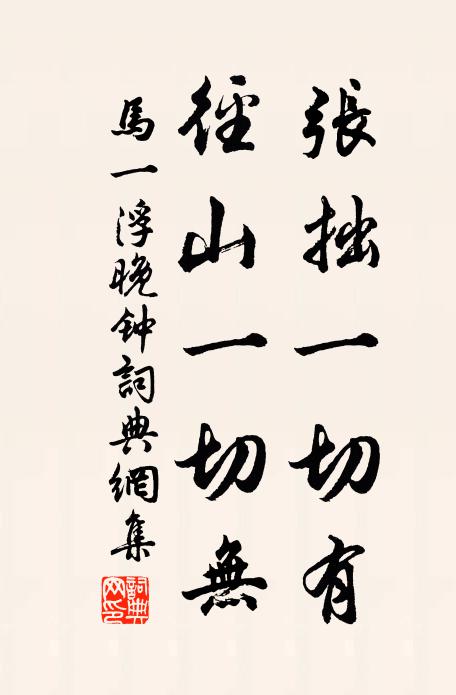 張拙一切有
徑山一切無
馬一浮晚钟詞典網集
詞典網印